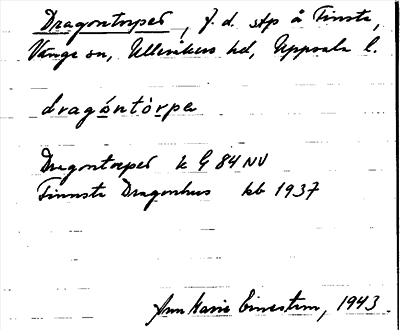 Dragontorpet, f. d. stp å Finsta,
Vänge sn, Ulleråkers hd, Uppsala l.
dragóntòrpe
Dragontorpet k G 84 NV
Finnsta Dragonhus kb 1937
Ann Marie                , 1943.